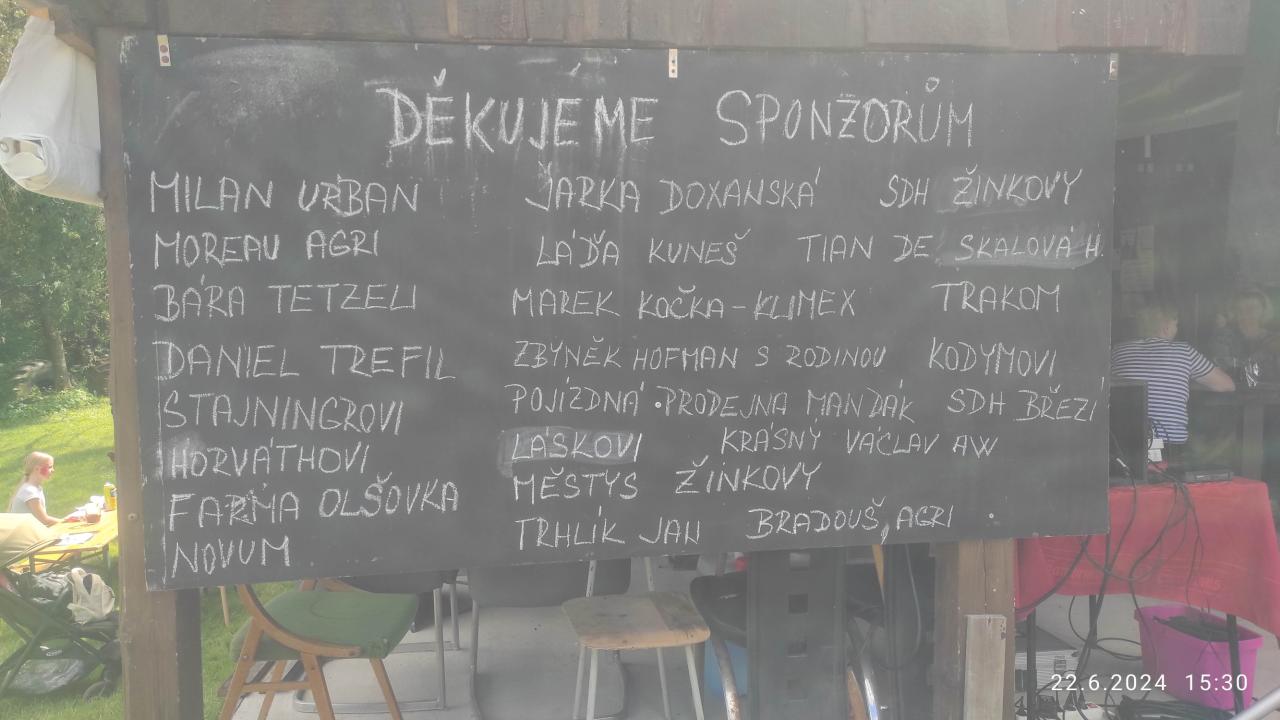 DĚKUJEME SPONZORŮM
MILAN URBAN JARKA DOXANSKÁ SDH ŽINKOVY
MOREAU AGRI LÁĎA KUNEŠ TIAN DE SKALOVÁ H.
BÁRA TETZELI MAREK KOČKA-KLIMEX TRAKOM
DANIEL TREFIL ZBYNĚK HOFMAN S RODINOU KODYMOVI
ŠTAJNINGROVI POJÍZDNÁ PRODEJNA MANDÁK SDH BŘEZÍ
HORVÁTHOVI LÁSKOVI KRÁSNÝ VÁCLAV AW
FARMA OLŠOVKA MĚSTYS ŽINKOVY
NOVUM TRHLÍK JAN BRADOUŠ, AGRI
22.6.2024 15:30